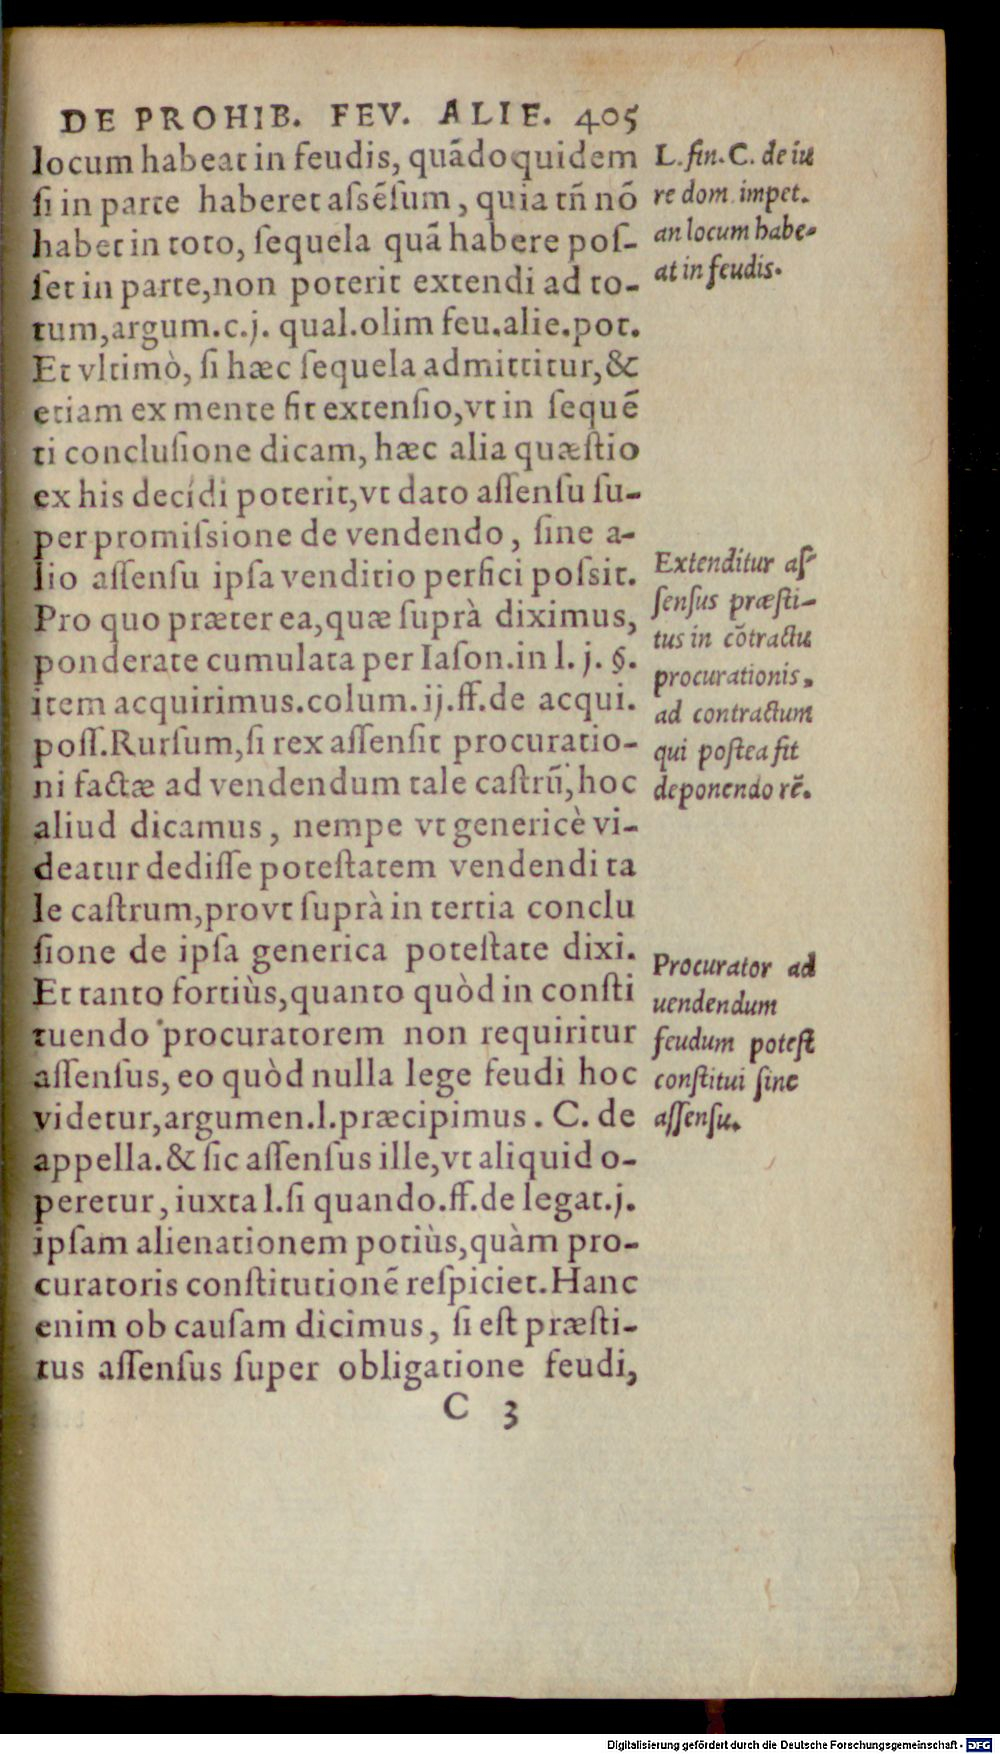 DE PROHIB. FEV. ALIE. 405
locum habeat in feudis, quãdoquidem
ſi in parte haberet aſsẽſum, quia tñ nõ
habet in toto, ſequela quã habere poſ-
ſet in parte, non poterit extendi ad to-
tum, argum. c. j. qual. olim feu. alie. pot.
Et vltimò, ſi hæc ſequela admittitur, &
etiam ex mente fit extenſio, vt in ſequẽ
ti concluſione dicam, hæc alia quæſtio
ex his decidi poterit, vt dato aſſenſu ſu-
per promiſsione de vendendo, ſine a-
lio aſſenſu ipſa venditio perfici poſsit.
Pro quo præter ea, quæ ſuprà diximus,
ponderate cumulata per Iaſon. in l. j. §.
item acquirimus. colum. ij. ff. de acqui.
poſſ. Rurſum, ſi rex aſſenſit procuratio-
ni factæ ad vendendum tale caſtrũ, hoc
aliud dicamus, nempe vt genericè vi-
deatur dediſſe poteſtatem vendendi ta
le caſtrum, provt ſuprà in tertia conclu
ſione de ipſa generica poteſtate dixi.
Et tanto fortiùs, quanto quòd in conſti
tuendo procuratorem non requiritur
aſſenſus, eo quòd nulla lege feudi hoc
videtur, argumen. l. præcipimus. C. de
appella. & ſic aſſenſus ille, vt aliquid o-
peretur, iuxta l. ſi quando. ff. de legat. j.
ipſam alienationem potiùs, quàm pro-
curatoris conſtitutionẽ reſpiciet. Hanc
enim ob cauſam dicimus, ſi eſt præſti-
tus aſſenſus ſuper obligatione feudi,
C 3
L. fin. C. de iu
re dom. impet.
an locum habe-
at in feudis.
Extenditur aſ-
ſenſus præſti-
tus in cõtractu
procurationis,
ad contractum
qui poſtea fit
deponendo rẽ.
Procurator ad
uendendum
feudum poteſt
conſtitui ſine
aſſenſu.
Digitalisierung gefördert durch die Deutsche Forschungsgemeinschaft - DFG